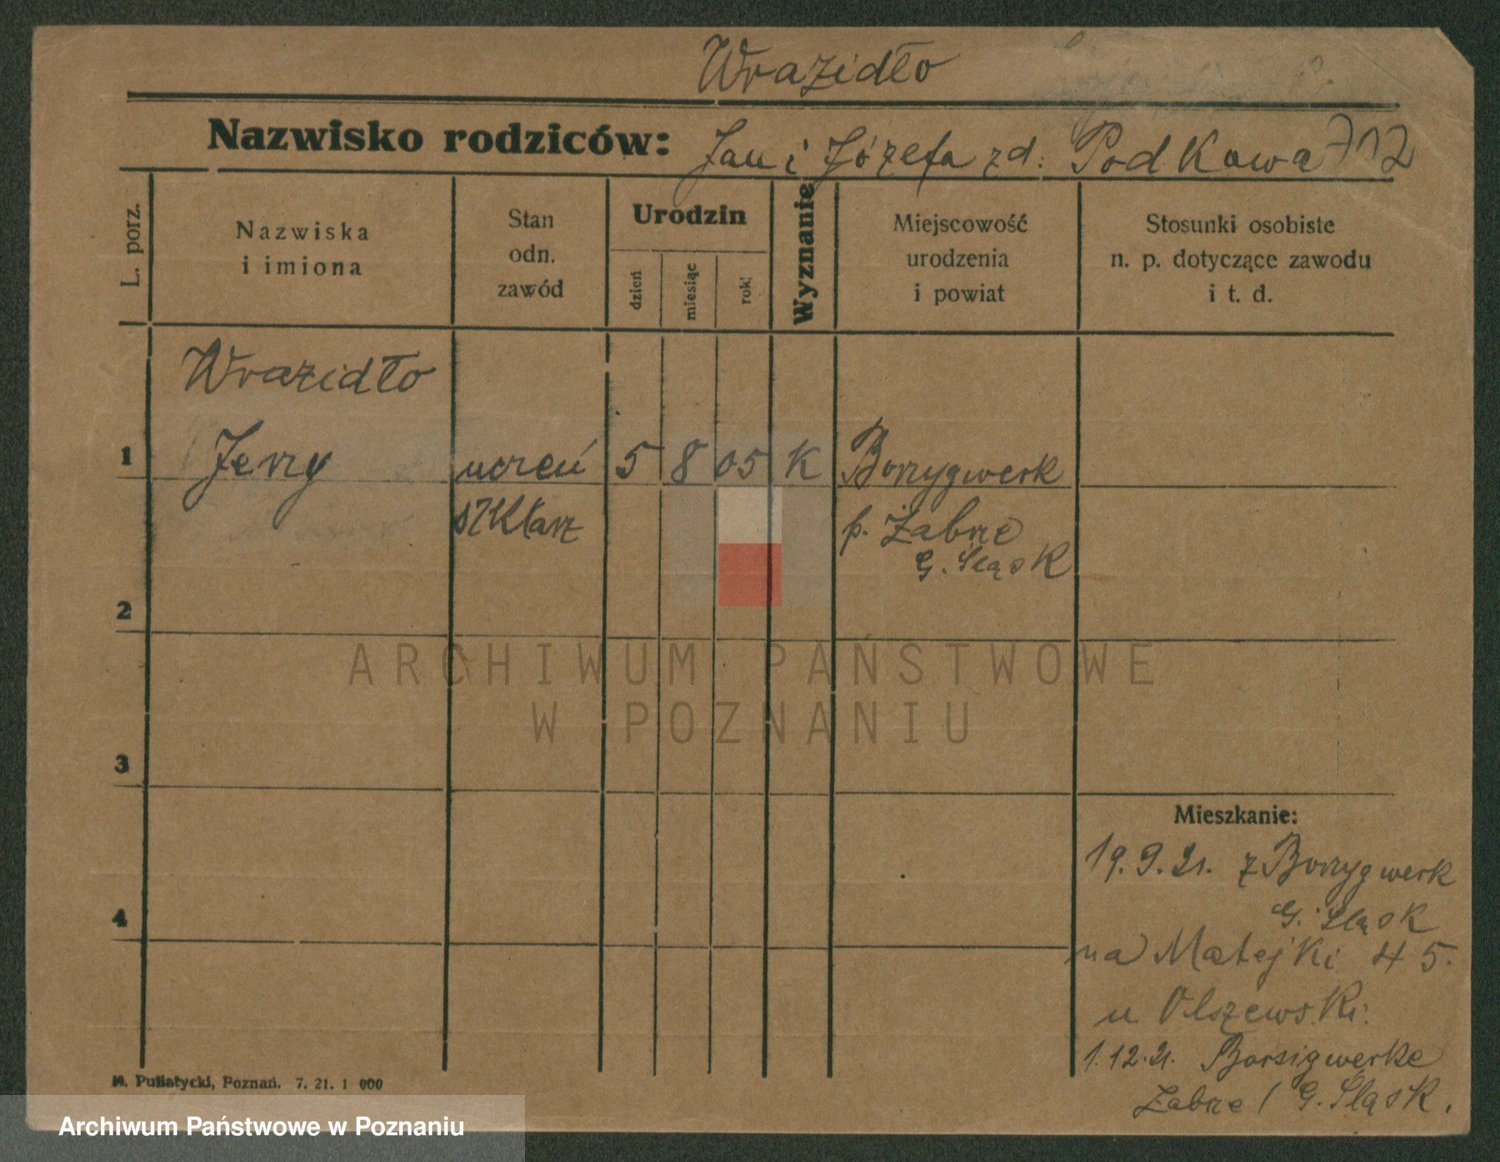 Wrazidło
Nazwisko rodziców: Jan i Józefa zd: Podkowa 712
L. porz.
Nazwiska
i imiona
Stan
odn.
zawód
Urodzin
dzień
miesiąc
rok
Wyznanie
Miejscowość
urodzenia
i powiat
Stosunki osobiste
n. p. dotyczące zawodu
i t. d.
Wrazidło
1 Jerzy uczeń 5 8 05 K Borzygwerk
szklarz p. Zabrze
G. Śląsk
2
ARCHIWUM PAŃSTWOWE
W POZNANIU
3
Mieszkanie:
19.9.21. z Borzygwerk
G. Śląsk
4
na Matejki 45.
u Olszewski.
1.12.21. Borsigwerke
Zabrze / G. Śląsk.
M. Putiatycki, Poznań. 7. 21. 1 000
Archiwum Państwowe w Poznaniu